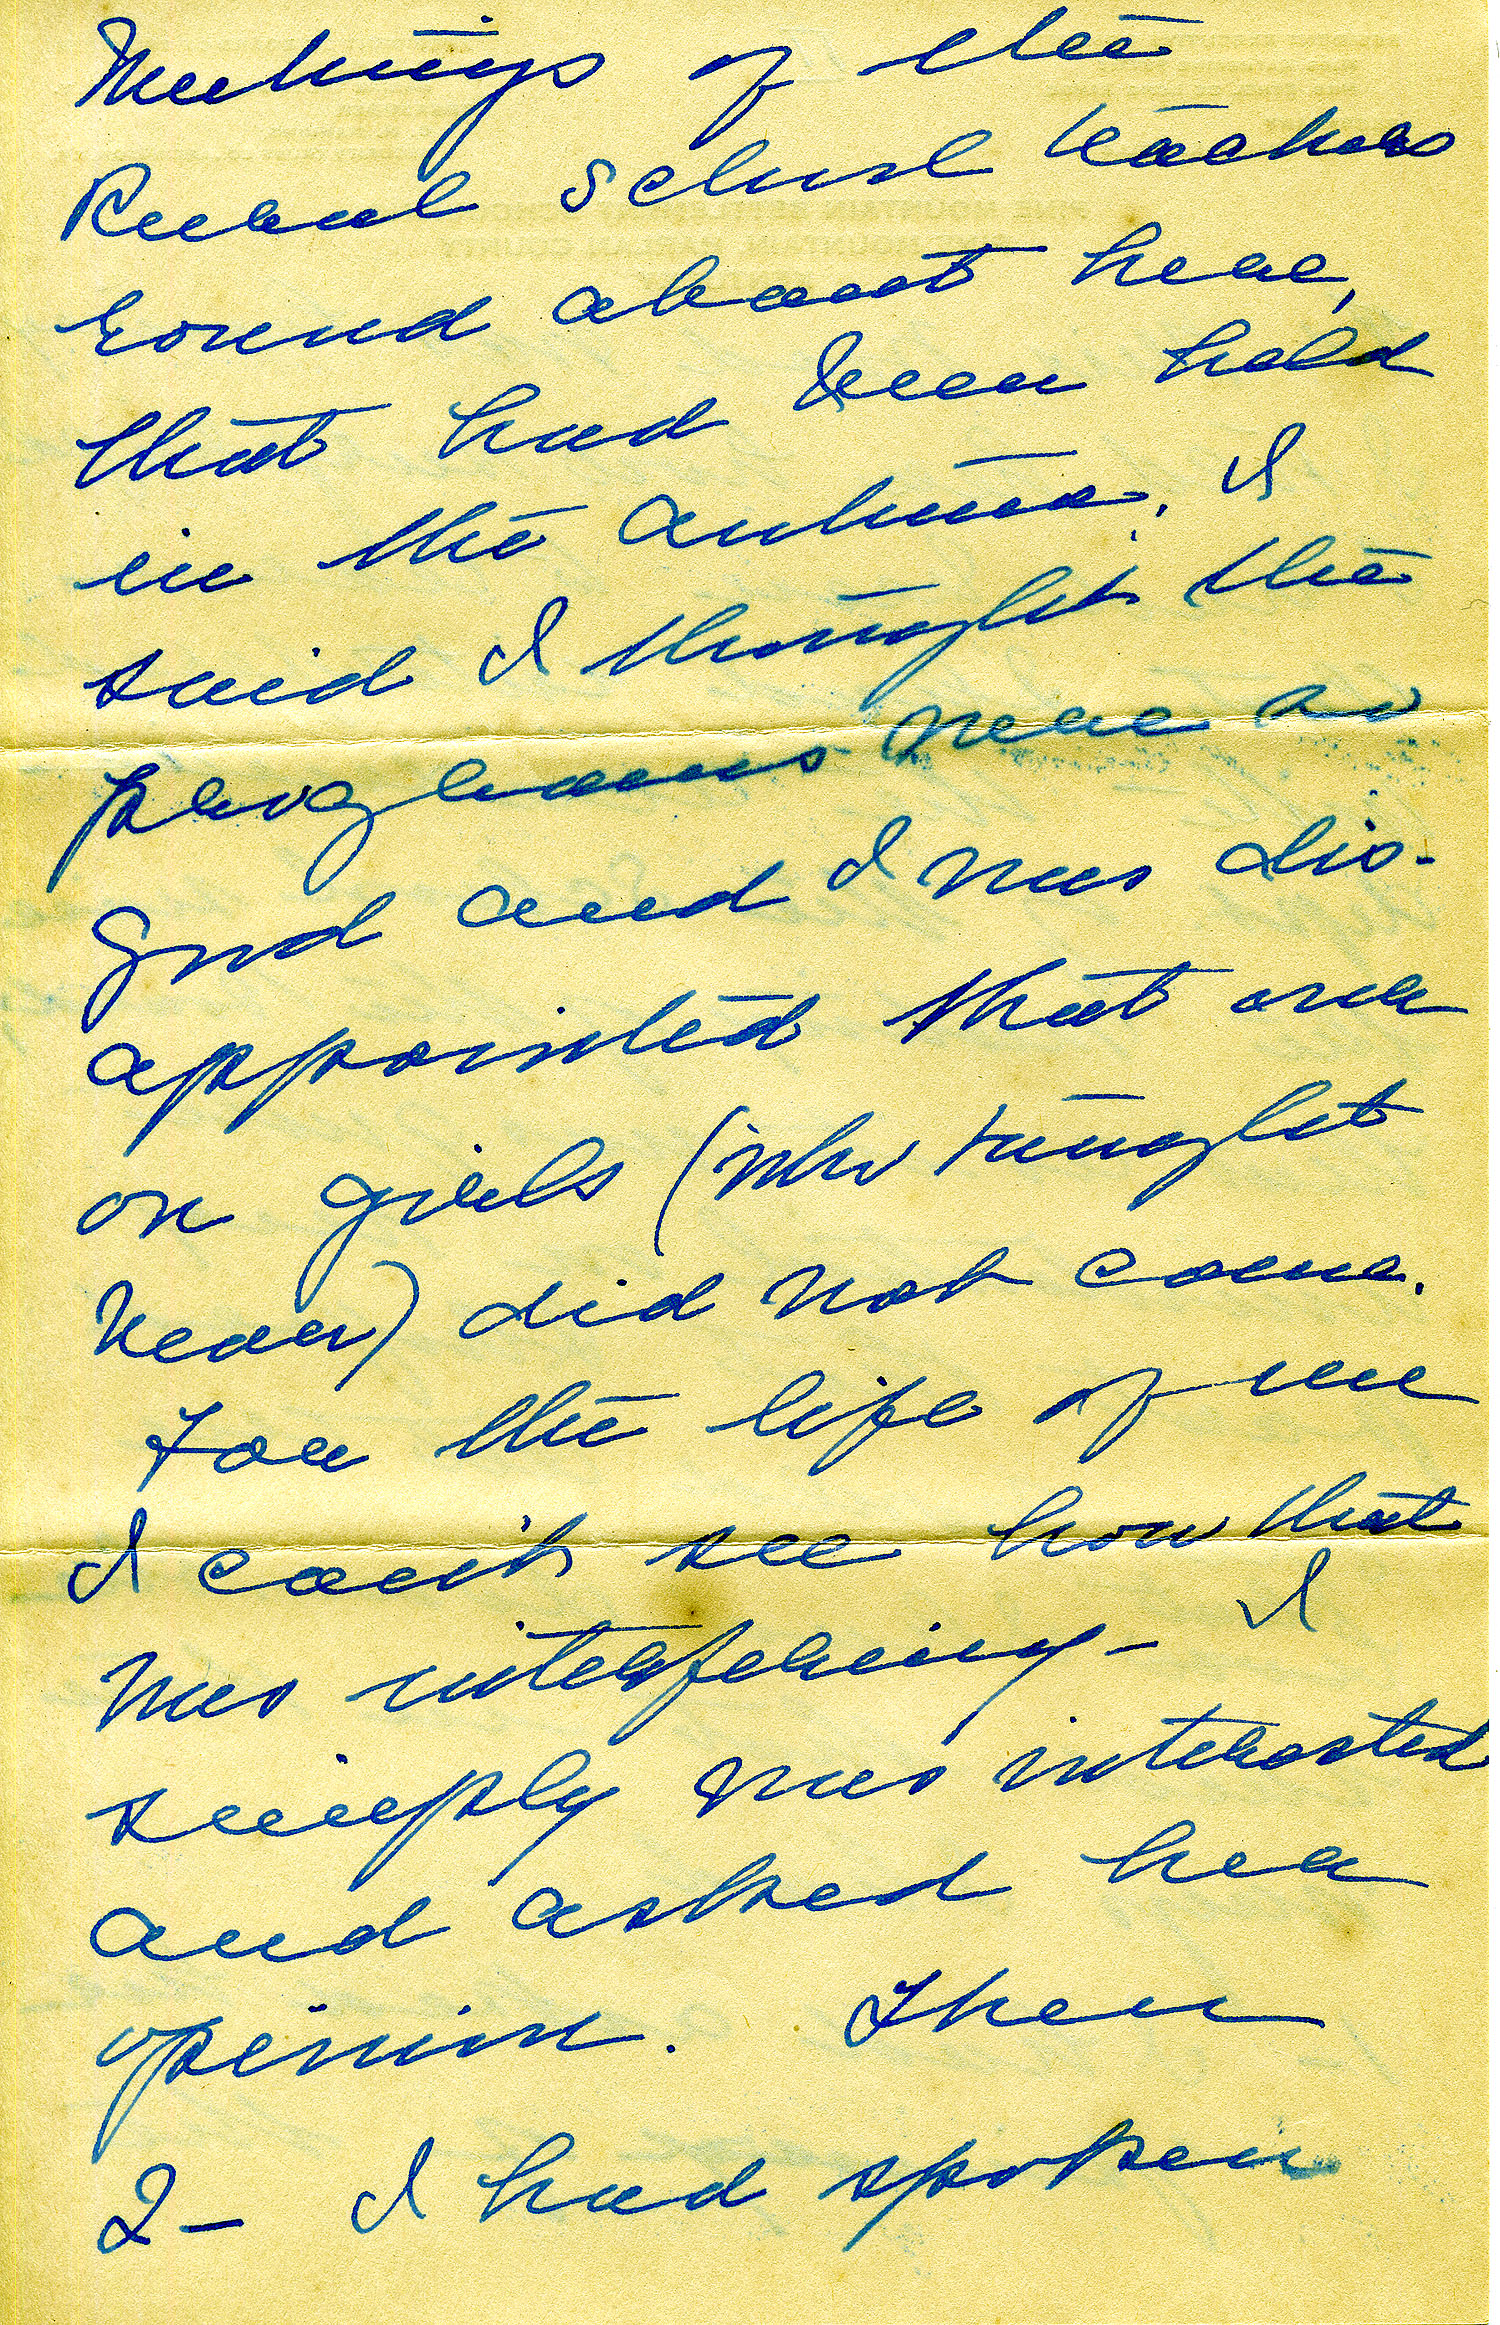 Meetings of the
Rural School teachers
round about here,
that had been held
in the autumn. I
said I thought the
programs were so
good and I was dis-
appointed that our
own girls (who taught
near) did not come.
For the life of me
I can't see how that
was interfering - I
simply was interested
and asked her
opinion. Then
2- I had spoken